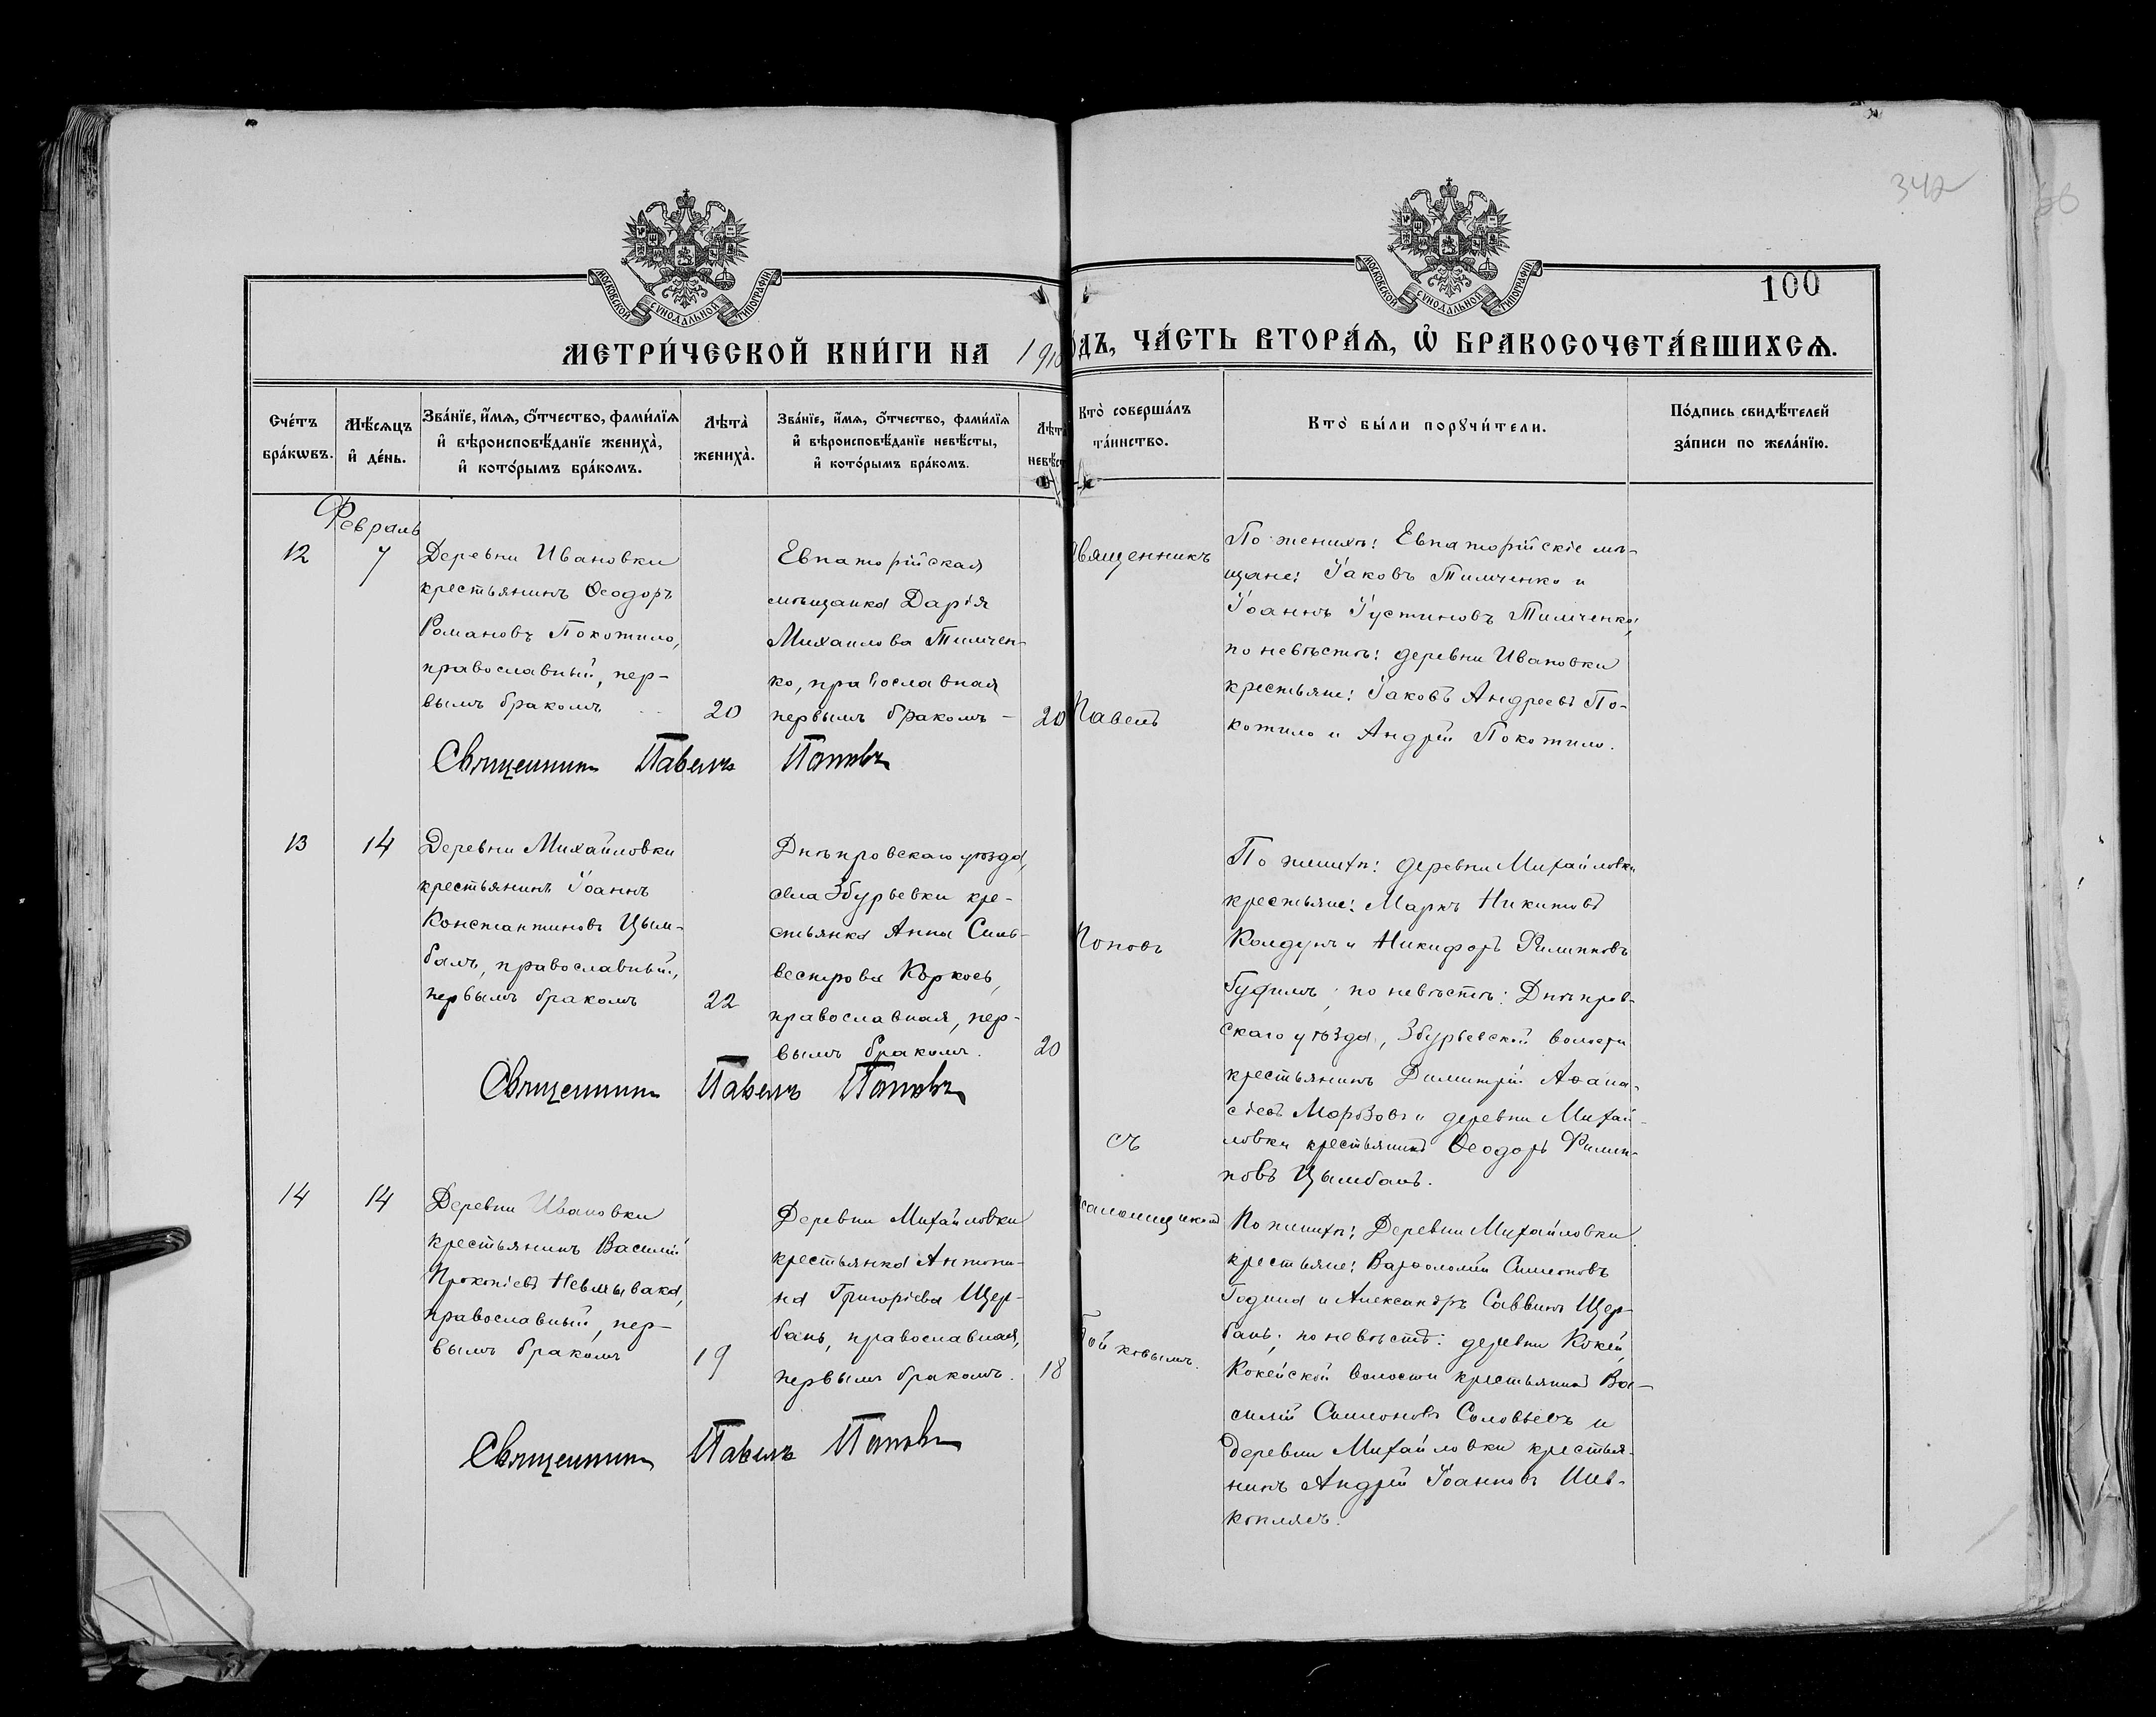 342
100
МОСКОВСКОЙ СѴНОДАЛЬНОЙ ТИПОГРАФІИ
МОСКОВСКОЙ СѴНОДАЛЬНОЙ ТИПОГРАФІИ
МЕТРИ́ЧЕСКОЙ КНИ́ГИ НА 1910
ДЪ, ЧА́СТЬ ВТОРА́Ѧ, Ѡ҆ БРАКОСОЧЕТА́ВШИХСѦ.
Сче́тъ
бра́кѡвъ.
Мѣ́сѧцъ
и҆ де́нь.
Зва́нїе, и҆́мѧ, ѻ҆́тчество, фами́лїѧ
и҆ вѣроисповѣ́данїе жениха̀,
и҆ кото́рымъ бра́комъ.
Лѣта̀
жениха̀.
Зва́нїе, и҆́мѧ, ѻ҆́тчество, фами́лїѧ
и҆ вѣроисповѣ́данїе невѣ́сты,
и҆ кото́рымъ бра́комъ.
Лѣта
невѣс
Кто̀ соверша́лъ
та́инство.
Кто̀ бы́ли порꙋчи́тели.
По́дпись свидѣ́телей
за́писи по жела́нїю.
Февраль
12
7
Деревни Ивановки
крестьянинъ Ѳеодоръ
Романовъ Покотило,
православный, пер-
вымъ бракомъ
20
Евпаторійская
мѣщанка Дарія
Михаилова Тимчен-
ко, православная
первымъ бракомъ -
20
Священникъ
Павелъ
По женихѣ: Евпаторійскіе мѣ-
щане: Іаковъ Тимченко и
Іоаннъ Іустиновъ Тимченко;
по невѣстѣ: деревни Ивановки
крестьяне: Іаковъ Андреевъ По-
котило и Андрей Покотило.
Священникъ Павелъ Поповъ
13
14
Деревни Михайловки
крестьянинъ Іоаннъ
Константиновъ Цым-
балъ, православный,
первымъ бракомъ
22
Днѣпровскаго уѣзда,
села Збурьевки кре-
стьянка Анна Силь-
вестрова Коркось,
православная, пер-
вымъ бракомъ.
20
Поповъ
съ
По женихѣ: деревни Михайловки
крестьяне: Маркъ Никитовъ
Колдунъ и Никифоръ Филипповъ
по невѣстѣ: Днѣпров-
скаго уѣзда, Збурьевской волости
крестьянинъ Димитрій Аѳана-
сіевъ Морозовъ и деревни Михай-
ловки крестьянинъ Ѳеодоръ Филип-
повъ Цымбалъ.
Священникъ Павелъ Поповъ
14
14
Деревни Ивановки
крестьянинъ Василій
Прокопіевъ Невмывака,
православный, пер-
вымъ бракомъ
19
Деревни Михайловки
крестьянка Антони-
на Григоріева Щер-
бань, православная,
первымъ бракомъ.
18
псаломщикомъ
По женихѣ: Деревни Михайловки
крестьяне: Варѳоломей Симеоновъ
Година и Александръ Саввинъ Щер-
бань; по невѣстѣ: деревни Кокей,
Кокейской волости крестьянинъ Ва-
силій Симеоновъ Соловьевъ и
деревни Михайловки крестья-
нинъ Андрей Іоанновъ Шев-
коплясъ.
Священникъ Павелъ Поповъ